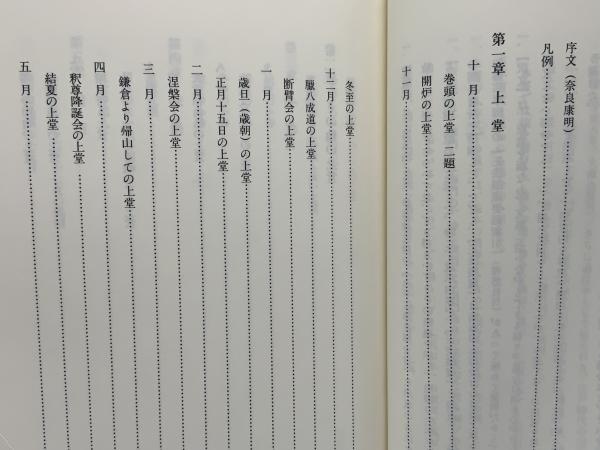 序文（奈良康明）
凡例
第一章　上堂
十月
巻頭の上堂　二題
開炉の上堂
十一月
冬至の上堂
十二月
断臂会の上堂
臘八成道の上堂
一月
歳旦（歳朝）の上堂
正月十五日の上堂
二月
涅槃会の上堂
三月
鎌倉より帰山しての上堂
四月
釈尊降誕会の上堂
結夏の上堂
五月